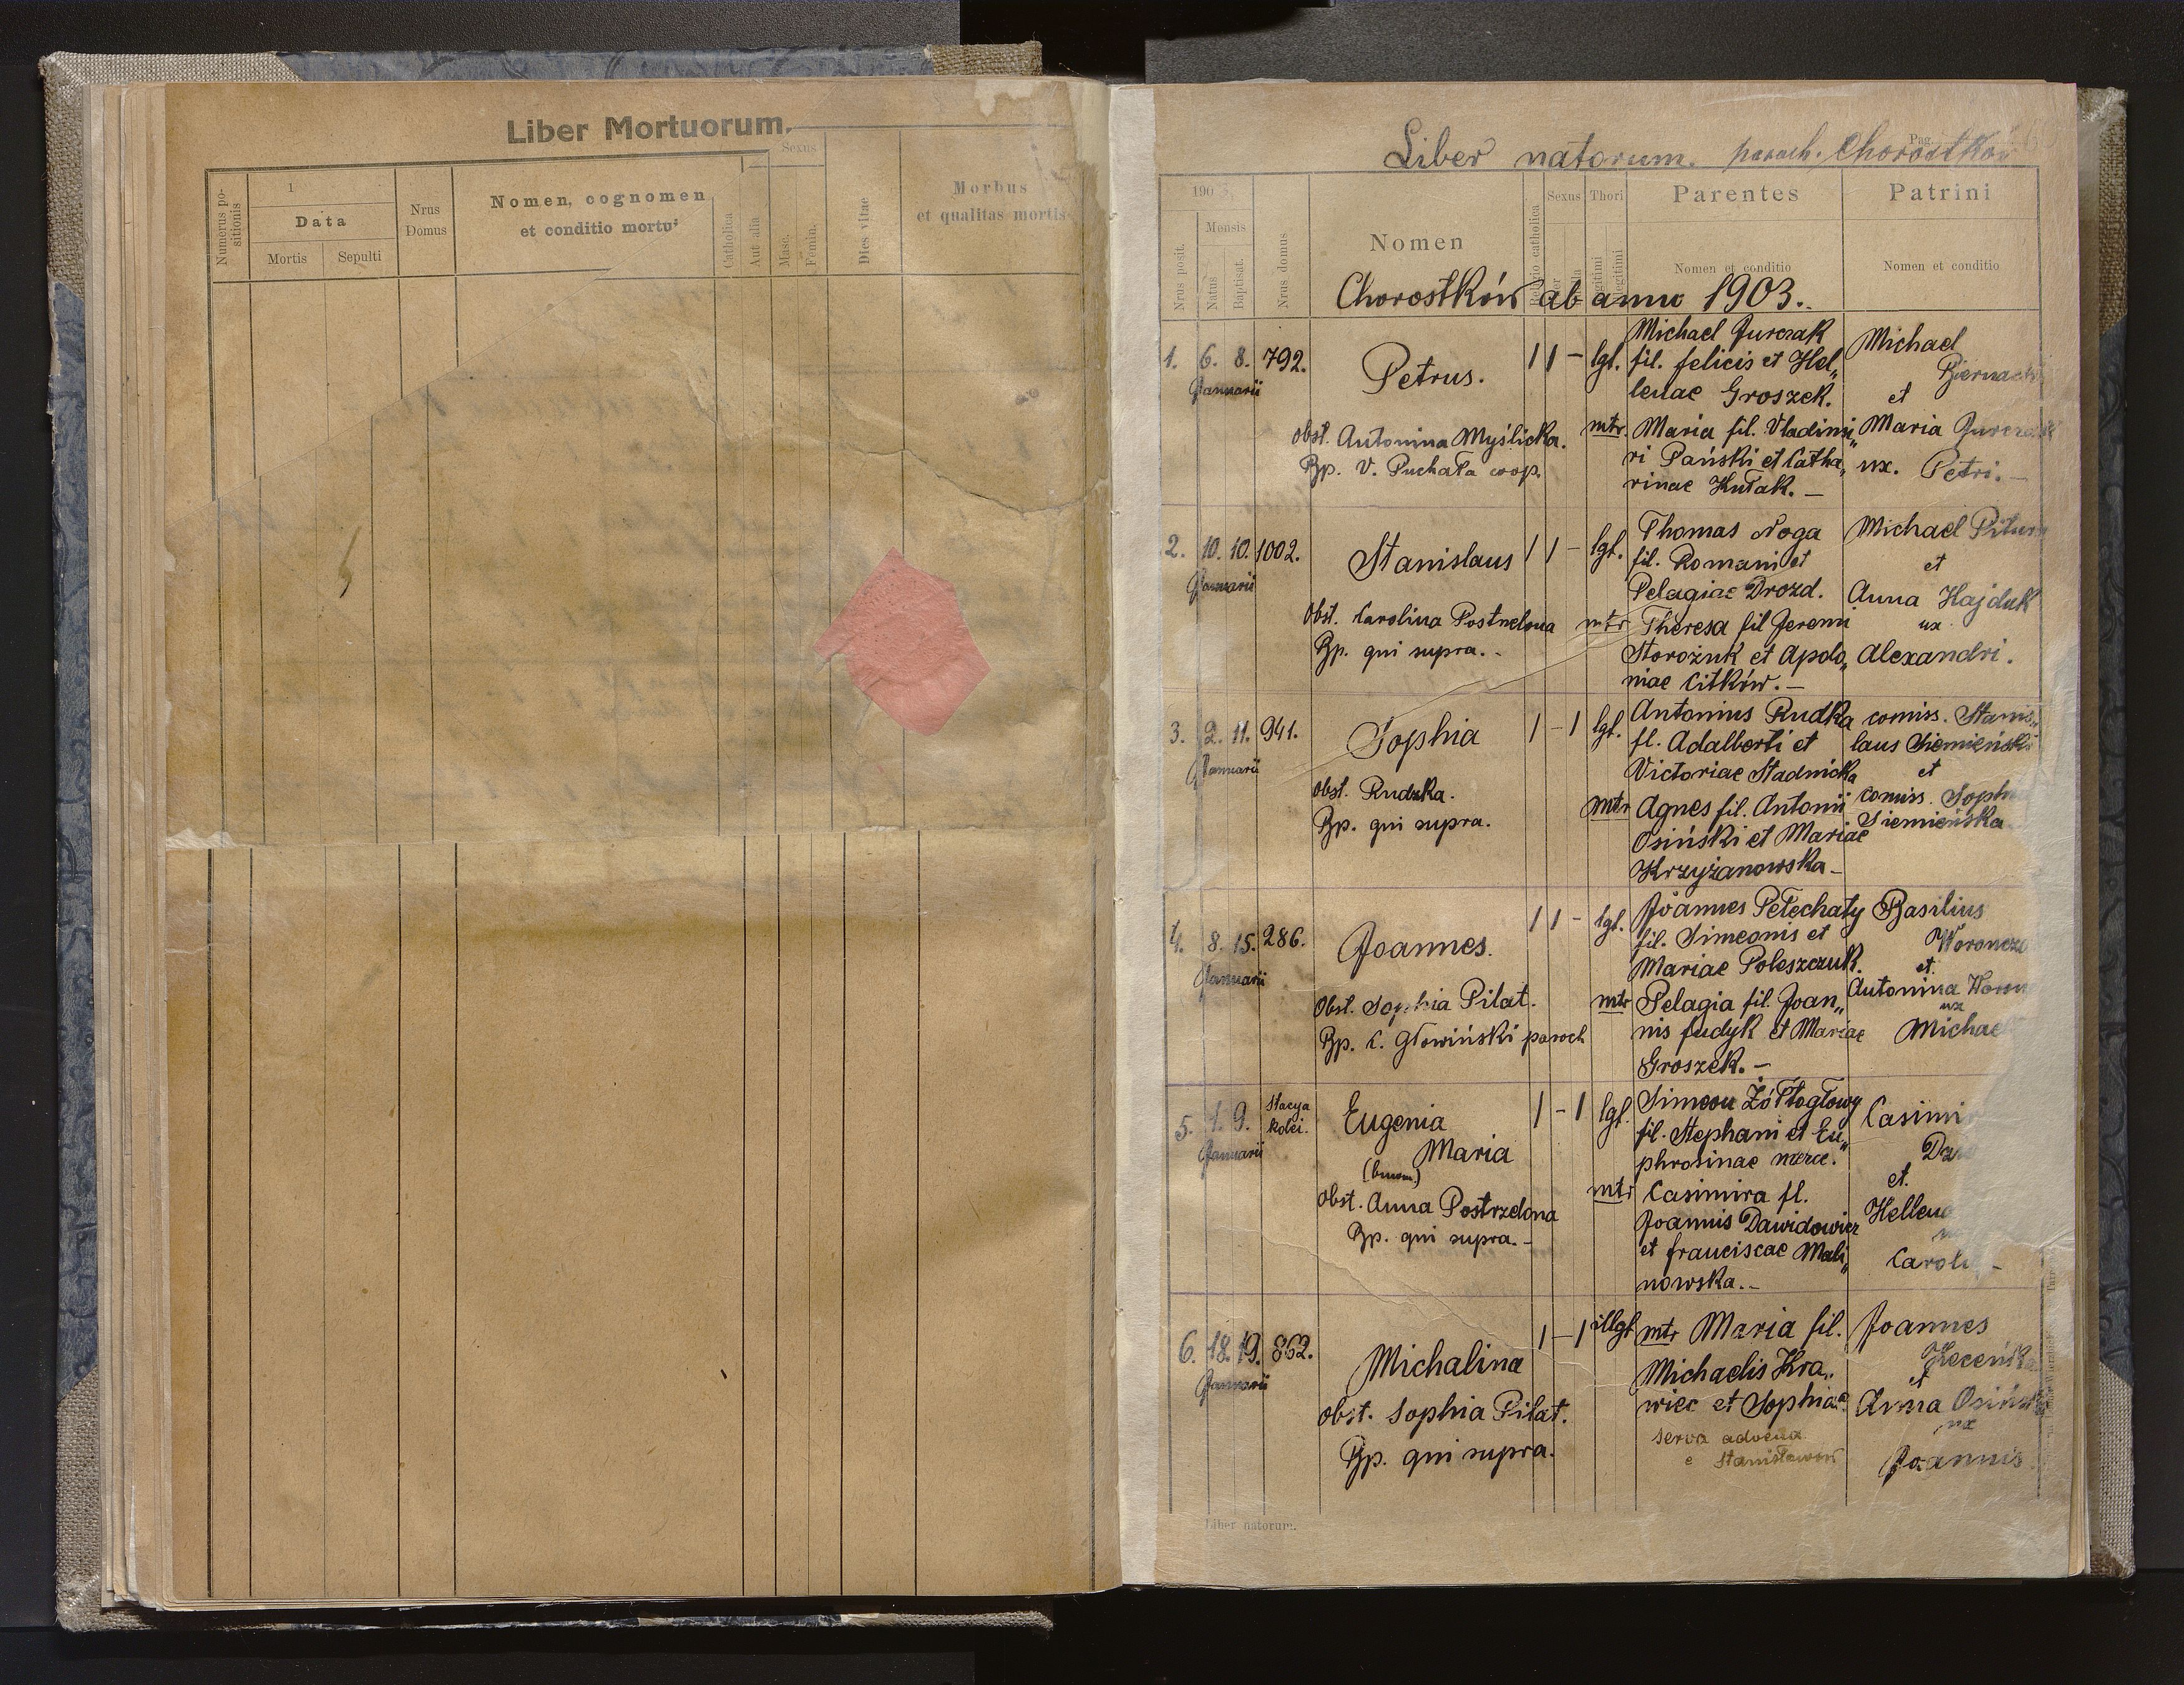 Liber Mortuorum.
Numerus po-
sitionis
1
Data
Mortis
Sepulti
Nrus
Domus
Nomen, cognomen
et conditio mortu
Catholica
Aut alia
Sexus
Masc.
Femin.
Dies vitae
Morbus
et qualitas mortis
Liber natorum. paroch. Chorostków
Pag.
1903
Nrus posit.
Mensis
Natus
Baptisat.
Nrus domus
Nomen
Religio catholica
Sexus
Thori
Parentes
Nomen et conditio
Patrini
Nomen et conditio
Chorostków ab anno 1903.
1. 6. 8. 792.
Januarii
Petrus.
obst. Antonina Myślicka.
Bp. V. Puchała coop.
1 1 - lgt.
Michael Jurczak
fil. felicis et Hel„
lenae Groszek.
mtr. Maria fil. Vladimi„
ri Pański et Catha„
rinae Kułak. -
Michael
et
Maria
ux. Petri. -
2. 10. 10. 1002.
Januarii
Stanislaus
Obst. Carolina
Bp. qui supra. -
1 1 - lgt.
Thomas Noga
fil. Romani et
Pelagiae Drozd.
mtr Theresa fil Jeremi
Storożuk et Apolo„
niae Citków. -
Michael
et
Anna Hajduk
ux
Alexandri.
3. 2. 11. 941.
Januarii
Sophia
Obst. Rudzka.
Bp. qui supra.
1 - 1 lgt.
Antonius Rudka
fl. Adalberti et
Victoriae Stadnicka
mtr Agnes fil. Antonii
Osiński et Mariae
Krzyżanowska -
comiss. Stanis„
laus Siemieński
et
comiss.
Siemieńska
4. 8. 15. 286.
Januarii
Joannes.
Obst. Sophia Pilat.
Bp. C. Głowiński paroch
1 1 - lgt.
Joannes Pełechaty
fil. Simeonis et
Mariae Poleszczuk.
mtr Pelagia fil. Joan„
nis fudyk et Mariae
Groszek. -
Basilius
et
Antonina
ux
5. 1. 9. Stacya
kolei.
Januarii
Eugenia
Maria
(binom.)
Obst. Anna Postrzelona
Bp. qui supra. -
1 - 1 lgt.
Simeon Żółtogłowy
fil. Stephani et Eu„
phrosinae merce.
mtr Casimira fl.
Joannis Dawidowicz
et franciscae Mali„
nowska. -
et
6. 18. 19. 862.
Januarii
Michalina
obst. Sophia Pilat.
Bp. qui supra.
1 - 1 illgt
mtr Maria fil.
Michaelis Kra„
wiec et Sophiae
serva advena
e Stanisławow
Joannes
et
Anna
ux
Joannis
Liber natorum.